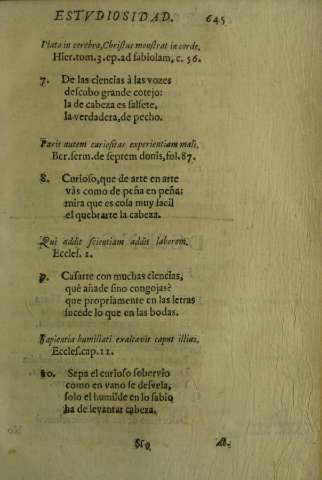 ESTVDIOSIDAD. 645
Plato in cerebro, Christus monstrat in corde,
Hier.tom.3.ep.ad fabiolam, c. 56.
7. De las ciencias à las vozes
descubo grande cotejo:
la de cabeza es falsete,
la verdadera, de pecho.
Parit autem curiositas experientiam mali,
Ber.serm.de septem donis, fol.87.
8. Curioso, que de arte en arte
vàs como de peña en peña:
mira que es cosa muy facil
el quebrarte la cabeza.
Qui addit scientiam addit laborem.
Eccles. 1.
9. Casarte con muchas ciencias,
què añade sino congojas?
que propriamente en las letras
sucede lo que en las bodas.
Sapientia humiliati exaltavit caput illius,
Eccles.cap.11.
10. Sepa el curioso sobervio
como en vano se desvela,
solo el humilde en lo sabio
ha de levantar cabeza.